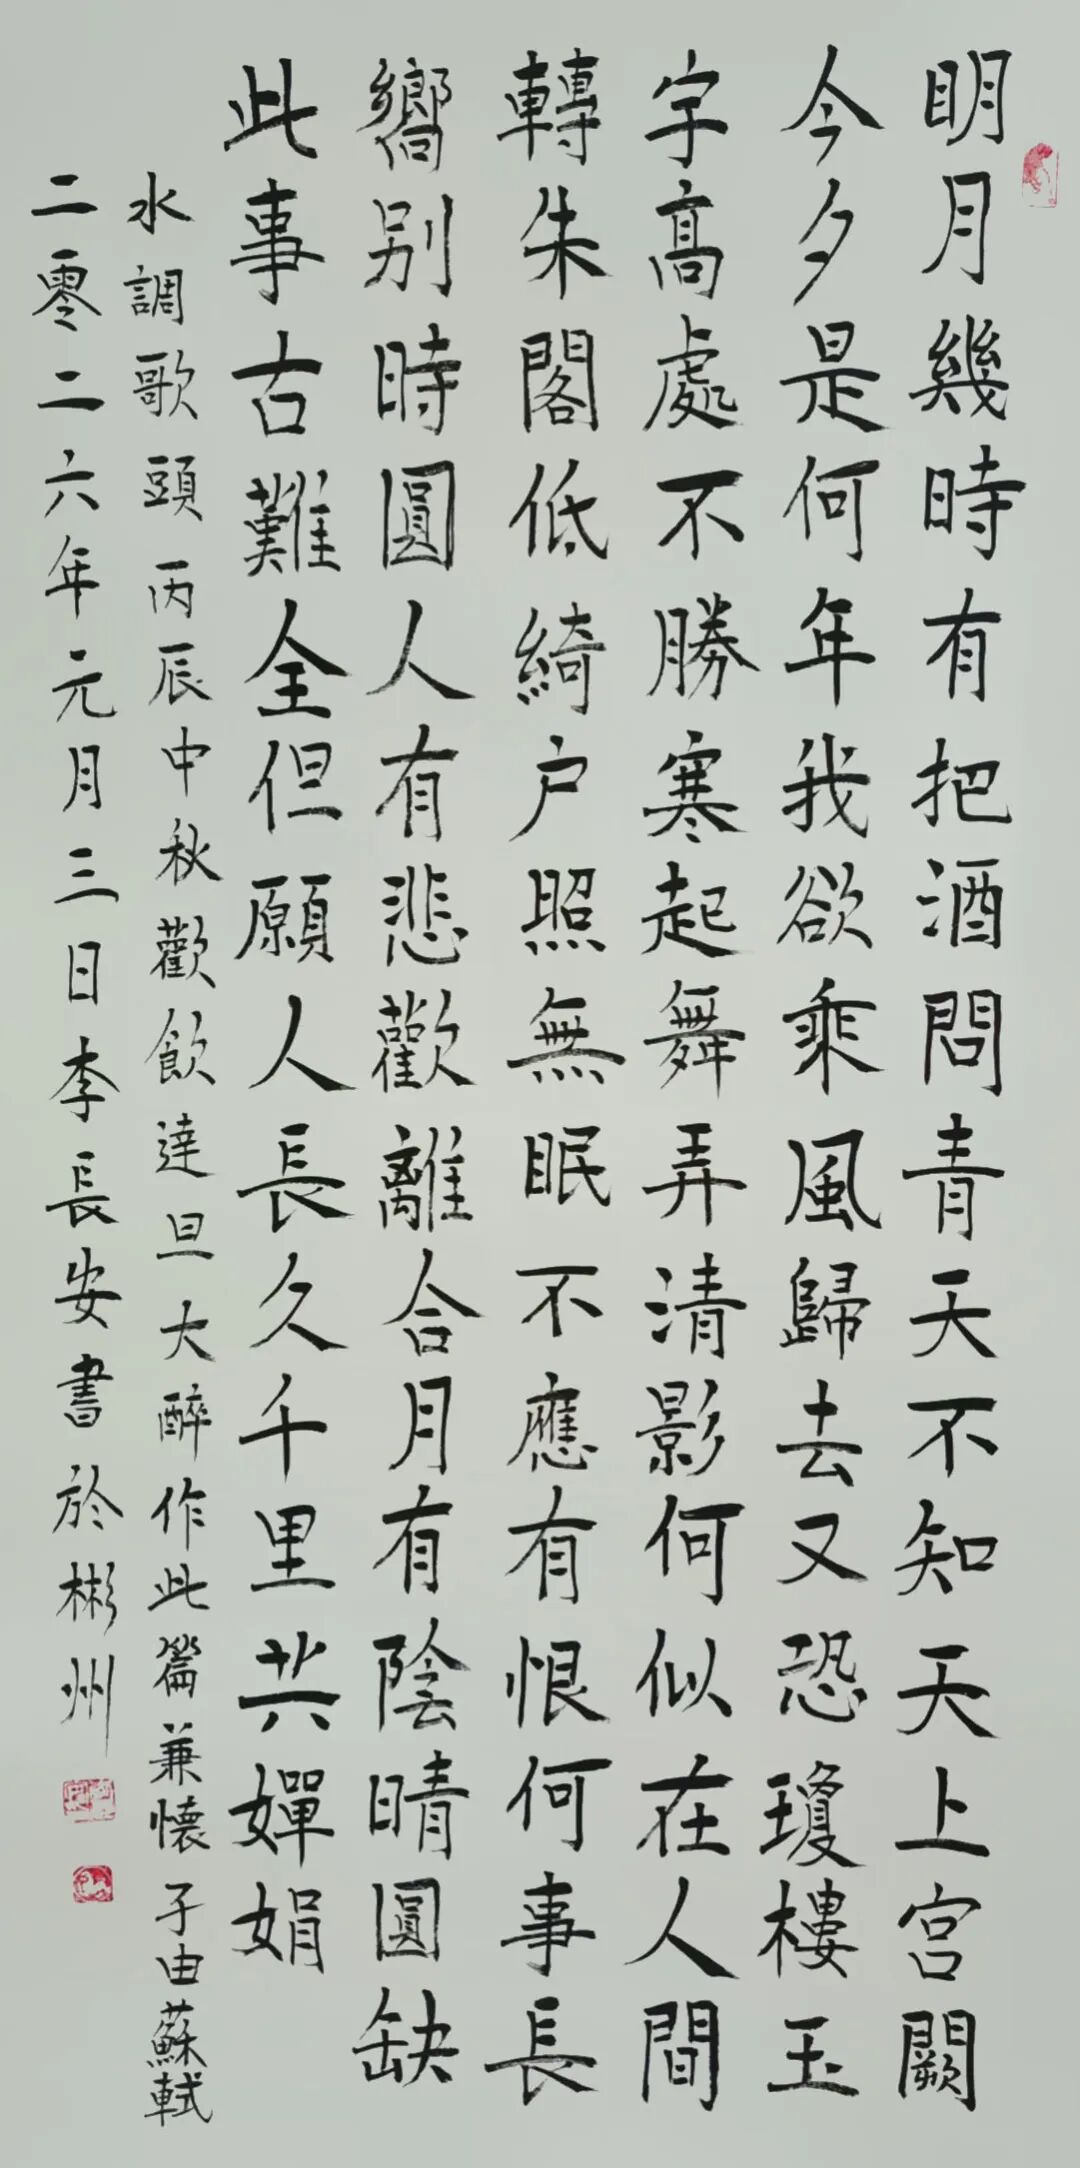 明月幾時有把酒問青天不知天上宮闕
今夕是何年我欲乘風歸去又恐瓊樓玉
宇高處不勝寒起舞弄清影何似在人間
轉朱閣低綺户照無眠不應有恨何事長
嚮别時圓人有悲歡離合月有陰晴圓缺
此事古難全但願人長久千里共嬋娟
水調歌頭 丙辰中秋歡飲達旦大醉作此篇兼懷子由蘇軾
二零二六年元月三日李長安書於彬州